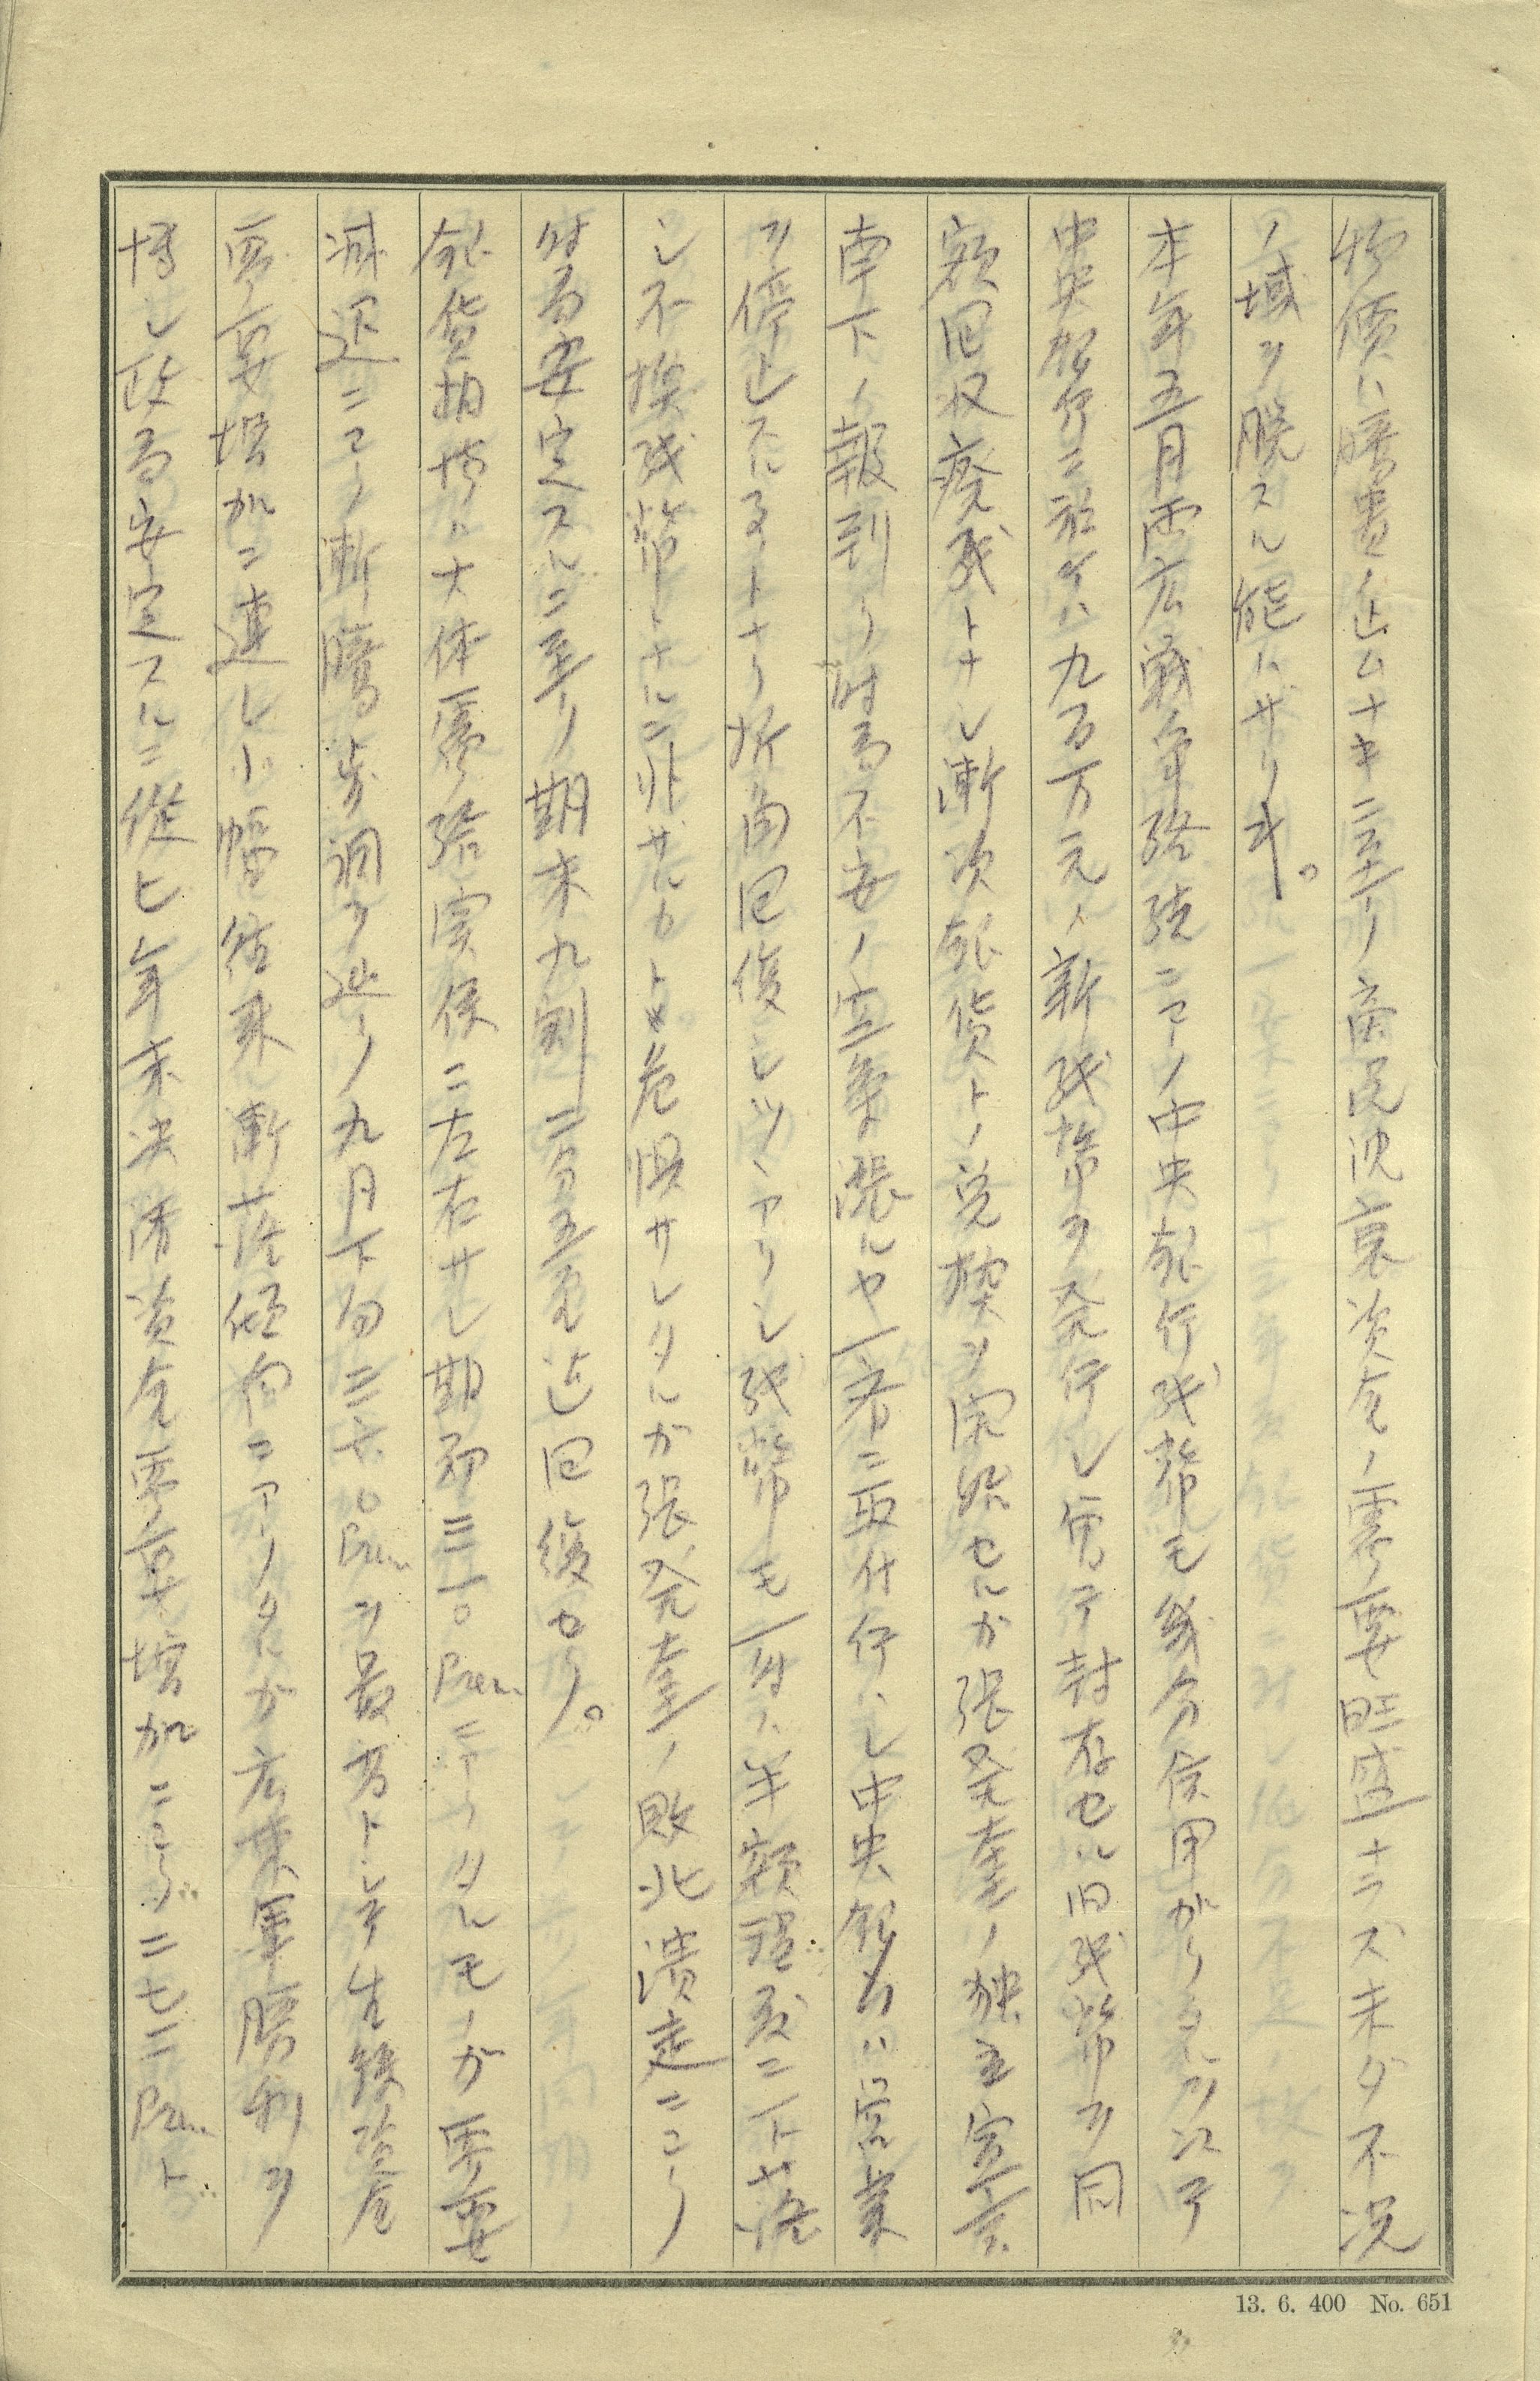 物価ハ騰貴ノ止ムナキニ至リ商況沈衰資金ノ需要旺盛ナラズ未ダ不況
ノ域ヲ脱スル能ハザリキ。
本年五月両広戦争終結ニヨリ中央銀行紙幣モ幾分信用ガタル以テ
中央銀行ニ於テハ九百万元ノ新紙幣ヲ発行シ曽テ封存セル旧紙幣ヲ同
額回収廃紙トナシ漸次銀貨トノ兌換ヲ開始セルガ張発奎ノ独立宣言
南下ノ報到リ時局不安ノ空気漲ルヤ一斉ニ取付行ハレ中央銀行ハ営業
ヲ停止スルコトトナリ折角回復シツヽアリシ紙幣モ一時ハ半額程度ニ下落
シ不換紙幣トナルニ非ザルカト危惧サレタルガ張発奎ノ敗北潰走ニヨリ
時局安定スルニ至リ期末九割二分五厘迄回復セリ。
銀貨相場ハ大体需給関係ニ左右サレ期初三一〇Prem.ニアリタルモノガ需要
減退ニヨリ漸騰歩調ヲ辿リ九月下旬三六.〇Prem.ヲ最高トシテ生銀资金
需要増加ニ連レ小幅往来漸落傾向ニアリタルガ広東軍勝利ヲ
博シ政局安定スルニ従ヒ年末決済資金需要増加ニヨリ二七二Prem.ト
13. 6. 400 No. 651